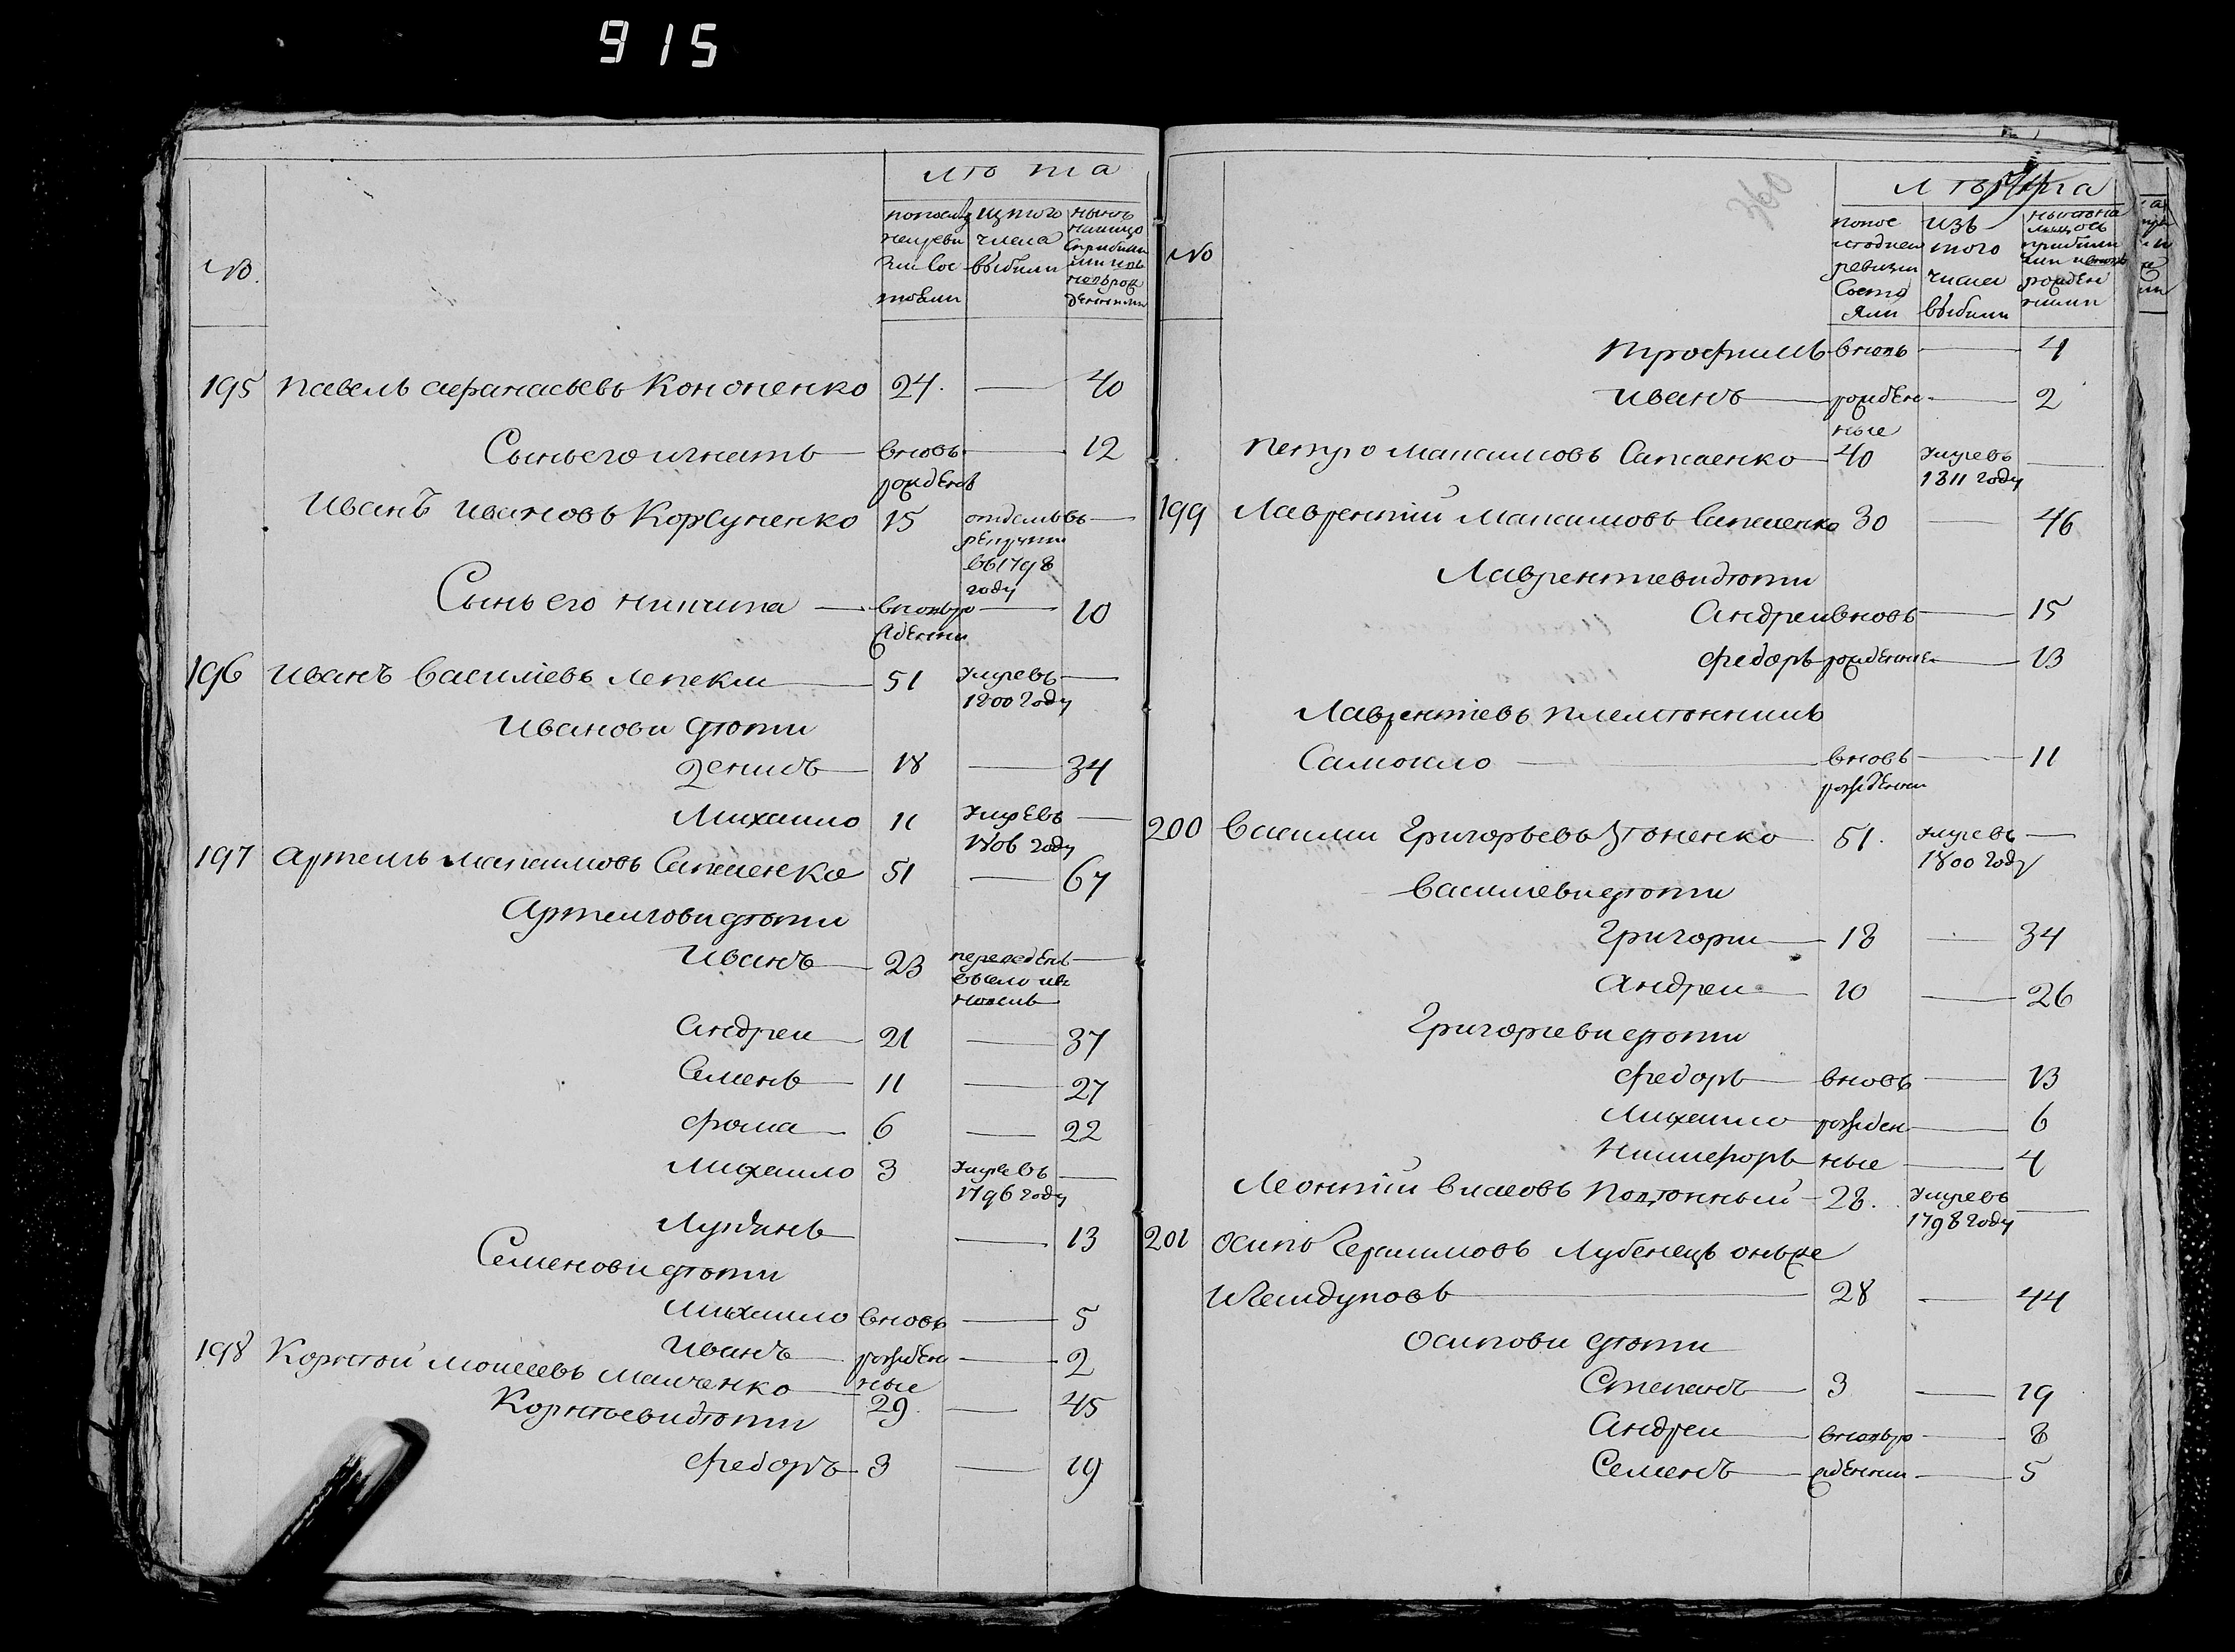 915
лѣта
№.
по последней ревизии состояли
ис того числа выбыли
ныне налицо с прибылыми и вновь рожденными
195 Павелъ Афанасьевъ Кононенко 24. — 40
Сынъ его Игнатъ вновь рожденъ — 12
Иванъ Ивановъ Корсуненко 15 отданъ въ рекруты въ 1798 году —
Сынъ его Никита — вновь рожденны — 10
196 Иванъ Василіевъ Лепехи 51 умре въ 1800 году —
Иванови дѣти
Денисъ 18 — 34
Михаило 11 умре въ 1806 году —
197 Артемъ Максимовъ Сипленко 51 — 67
Артемови дѣти
Иванъ 23 переведенъ въ село —
Андреи 21 — 37
Семенъ 11 — 27
Фома 6 — 22
Михаило 3 умре въ 1796 году —
Лукъянъ — 13
Семенови дѣти
Михаило вновь — 5
Иванъ рожденные — 2
198 Корнѣй Моисеевъ Маиченко 29 — 45
Корнѣеви дѣти
Федоръ 3 — 19
360
лѣта
№
по последней ревизии состояли
изъ того числа выбыли
ныне на лицо съ прибыли и вновь рожденными
Трофимъ вновь — 4
Иванъ рожденные — 2
Петро Максимовъ Сипленко 40 умре въ 1811 году —
199 Лаврентій Максимовъ Сипленко 30 — 46
Лаврентеви дѣти
Андреи вновь — 15
Федоръ рожденные — 13
Лаврентіевъ племѣнникъ
Самоило — вновь рожденны — 11
200 Василии Григорьевъ Зѣненко 51. умре въ 1800 году —
Василіеви дѣти
Григории 18 — 34
Андреи 10 — 26
Григориеви дѣти
Федоръ вновь — 13
Михаило рожден — 6
Никифоръ ные — 4
Леонтій Власовъ Подтонный 28. умре въ 1798 году —
201 Осипъ Герасимовъ Лубенецъ онъ же
Шкандуповъ 28 — 44
Осипови дѣти
Степанъ 3 — 19
Андреи вновь ро — 8
Семенъ жденны — 5